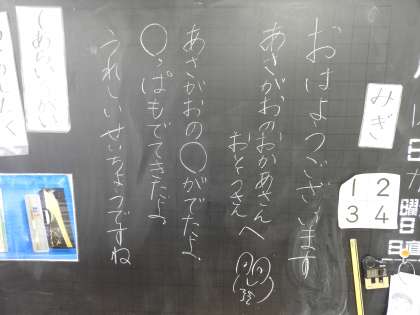 おはようございます
あさがおのおかあさん
おとうさんへ
あさがおの○がでたよ。
○っぱもでてきたよ。
うれしいせいちょうですね
みぎ
1 2
3 4
曜日
日直